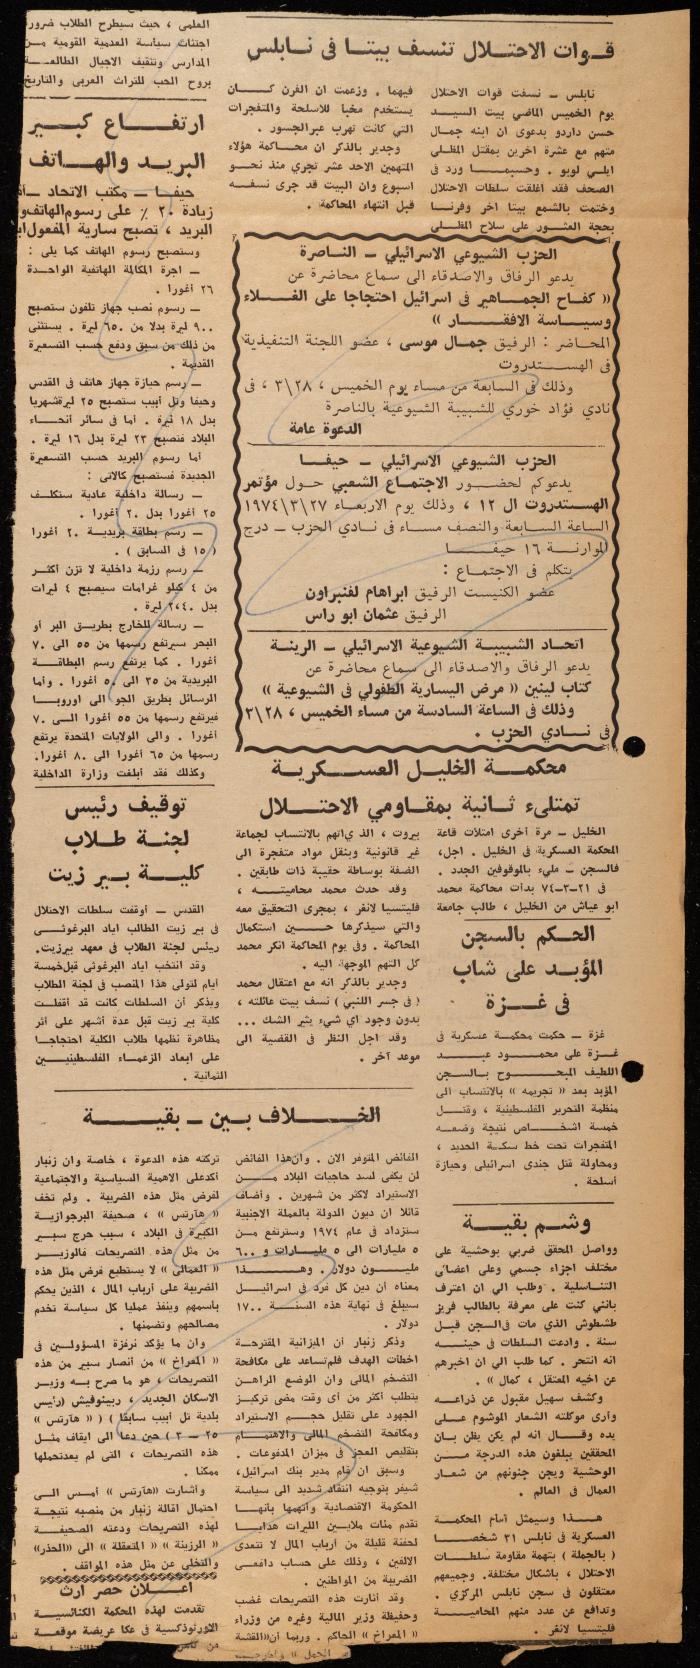 قوات الاحتلال تنسف بيتا في نابلس
نابلس ــ نسفت قوات الاحتلال
يوم الخميس الماضي بيت السيد
حسن داردو بدعوى ان ابنه جمال
متهم مع عشرة اخرين بمقتل المظلي
ايلي لوبو . وحسبما ورد في
الصحف فقد اغلقت سلطات الاحتلال
وختمت بالشمع بيتا اخر وفرنا
بحجة العثور على سلاح المظلي
فيهما . وزعمت ان الفرن كان
يستخدم مخبأ للاسلحة والمتفجرات
التي كانت تهرب عبر الجسور .
وجدير بالذكر ان محاكمة هؤلاء
المتهمين الاحد عشر تجري منذ نحو
اسبوع وان البيت قد جرى نسفه
قبل انتهاء المحاكمة .
الحزب الشيوعي الاسرائيلي ــ الناصرة
يدعو الرفاق والاصدقاء الى سماع محاضرة عن
« كفاح الجماهير في اسرائيل احتجاجا على الغلاء
وسياسة الافقار »
المحاضر : الرفيق جمال موسى ، عضو اللجنة التنفيذية
في الهستدروت
وذلك في السابعة من مساء يوم الخميس ، ٣\٢٨ ، في
نادي فؤاد خوري للشبيبة الشيوعية بالناصرة
الدعوة عامة
الحزب الشيوعي الاسرائيلي ــ حيفا
يدعوكم لحضور الاجتماع الشعبي حول مؤتمر
الهستدروت ال ١٢ ، وذلك يوم الاربعاء ١٩٧٤\٣\٢٧
الساعة السابعة والنصف مساء في نادي الحزب ــ درج
الموارنة ١٦ حيفا
يتكلم في الاجتماع :
عضو الكنيست الرفيق ابراهام لفنبراون
الرفيق عثمان ابو راس
اتحاد الشبيبة الشيوعية الاسرائيلي ــ الرينة
يدعو الرفاق والاصدقاء الى سماع محاضرة عن
كتاب لينين « مرض اليسارية الطفولي في الشيوعية »
وذلك في الساعة السادسة من مساء الخميس ، ٣\٢٨
في نادي الحزب .
محكمة الخليل العسكرية
تمتلىء ثانية بمقاومي الاحتلال
الخليل ــ مرة أخرى امتلات قاعة
المحكمة العسكرية في الخليل . اجل،
فالسجن ــ مليء بالموقوفين الجدد .
في ٢١ــ٣ــ٧٤ بدأت محاكمة محمد
ابو عياش من الخليل ، طالب جامعة
بيروت ، الذي اتهم بالانتساب لجماعة
غير قانونية وبنقل مواد متفجرة الى
الضفة بوساطة حقيبة ذات طابقين .
وقد حدث محمد محاميته ،
فليتسيا لانغر ، بمجرى التحقيق معه
والتي سيذكرها حين استكمال
المحاكمة . وفي يوم المحاكمة انكر محمد
كل التهم الموجهة اليه .
وجدير بالذكر انه مع اعتقال محمد
( في جسر اللنبي ) نسف بيت عائلته ،
بدون وجود اي شيء يثير الشك ...
وقد اجل النظر في القضية الى
موعد آخر .
الحكم بالسجن
المؤبد على شاب
في غزة
غزة ــ حكمت محكمة عسكرية في
غزة على محمود عبد
اللطيف المبحوح بالسجن
المؤبد بعد « تجريمه » بالانتساب الى
منظمة التحرير الفلسطينية ، وقتل
خمسة اشخاص نتيجة وضعه
المتفجرات تحت خط سكة الحديد ،
ومحاولة قتل جندي اسرائيلي وحيازة
أسلحة .
وشم بقية
وواصل المحقق ضربي بوحشية على
مختلف اجزاء جسمي وعلى اعضائي
التناسلية . وطلب الي ان اعترف
بانني كنت على معرفة بالطالب فريز
طشطوش الذي مات في السجن قبل
سنة . وادعت السلطات في حينه
انه انتحر . كما طلب الي ان اخبرهم
عن اخيه المعتقل ، كمال » .
وكشف سهيل مقبول عن ذراعه
وارى موكلته الشعار الموشوم على
يده وقال انه لم يكن يظن بان
المحققين يبلغون هذه الدرجة من
الوحشية ويجن جنونهم من شعار
العمال في العالم .
هذا وسيمثل أمام المحكمة
العسكرية في نابلس ٣١ شخصا
( بالجملة ) بتهمة مقاومة سلطات
الاحتلال ، باشكال مختلفة. وجميعهم
معتقلون في سجن نابلس المركزي .
وتدافع عن عدد منهم المحامية
فليتسيا لانغر .
العلمي ، حيث سيطرح الطلاب ضرور
اجتثاث سياسة العدمية القومية من
المدارس وتثقيف الاجيال الطالعة
بروح الحب للتراث العربي والتاريخ
ارتفاع كبير
البريد والهاتف
حيفا ــ مكتب الاتحاد
زيادة ٢٠ ٪ على رسوم الهاتف
البريد ، تصبح سارية المفعول
وستصبح رسوم الهاتف كما يلي :
ــ اجرة المكالمة الهاتفية الواحدة
٢٦ أغورا .
ــ رسوم نصب جهاز تلفون ستصبح
٩٠٠ ليرة بدلا من ٦٥٠ ليرة . يستثنى
من ذلك من سبق ودفع حسب التسعيرة
القديمة .
ــ رسم حيازة جهاز هاتف في القدس
وحيفا وتل أبيب ستصبح ٢٥ ليرة شهريا
بدل ١٨ ليرة . أما في سائر أنحاء
البلاد فتصبح ٢٣ ليرة بدل ١٦ ليرة .
أما رسوم البريد حسب التسعيرة
الجديدة فستصبح كالاتي :
ــ رسالة داخلية عادية ستكلف
٢٥ أغورا بدل ٢٠ أغورا .
ــ رسم بطاقة بريدية ٢٠ أغورا
( ١٥ في السابق ) .
ــ رسم رزمة داخلية لا تزن أكثر
من ٤ كيلو غرامات سيصبح ٤ ليرات
بدل ٢٫٤٠ ليرة .
ــ رسالة للخارج بطريق البر أو
البحر سيرتفع رسمها من ٥٥ الى ٧٠
أغورا . كما يرتفع رسم البطاقة
البريدية من ٣٥ الى ٥٠ أغورا . وأما
الرسائل بطريق الجو الى اوروبا
فيرتفع رسمها من ٥٥ أغورا الى ٧٠
أغورا . والى الولايات المتحدة يرتفع
رسمها من ٦٥ أغورا الى ٨٠ أغورا.
وكذلك فقد أبلغت وزارة الداخلية
توقيف رئيس
لجنة طلاب
كلية بير زيت
القدس ــ أوقفت سلطات الاحتلال
في بير زيت الطالب اياد البرغوثي
رئيس لجنة الطلاب في معهد بيرزيت.
وقد انتخب اياد البرغوثي قبل خمسة
أيام لتولي هذا المنصب في لجنة الطلاب
ويذكر أن السلطات كانت قد أقفلت
كلية بير زيت قبل عدة أشهر على أثر
مظاهرة نظمها طلاب الكلية احتجاجا
على ابعاد الزعماء الفلسطينيين
الثمانية .
الخلاف بين ــ بقية
الفائض المتوفر الان . وان هذا الفائض
لن يكفي لسد حاجيات البلاد من
الاستيراد لاكثر من شهرين . وأضاف
قائلا ان ديون الدولة بالعملة الاجنبية
ستزداد في عام ١٩٧٤ وسترتفع من
٥ مليارات الى ٥ مليارات و ٦٠٠
مليون دولار . وهذا
معناه أن دين كل فرد في اسرائيل
سيبلغ في نهاية هذه السنة ١٧٠٠
دولار .
وذكر زنبار أن الميزانية المقترحة
اخطات الهدف فلم تساعد على مكافحة
التضخم المالي وان الوضع الراهن
يتطلب أكثر من أي وقت مضى تركيز
الجهود على تقليل حجم الاستيراد
ومكافحة التضخم المالي والاهتمام
بتقليص العجز في ميزان المدفوعات .
وسبق ان قام مدير بنك اسرائيل،
شيفر بتوجيه انتقاد شديد الى سياسة
الحكومة الاقتصادية واتهمها بأنها
تقدم مئات ملايين الليرات هدايا
لحفنة قليلة من أرباب المال لا تتعدى
الالفين ، وذلك على حساب دافعي
الضريبة من المواطنين .
وقد أثارت هذه التصريحات غضب
وحفيظة وزير المالية وغيره من وزراء
« المعراخ » الحاكم . وربما أن «القشة
تركته هذه الدعوة ، خاصة وان زنبار
أكد على الاهمية السياسية والاجتماعية
لفرض مثل هذه الضريبة . ولم تخف
« هآرتس » ، صحيفة البرجوازية
الكبيرة في البلاد ، سبب حرج سبير
من مثل هذه التصريحات فالوزير
« العمالي » لا يستطيع فرض مثل هذه
الضريبة على أرباب المال ، الذين يحكم
باسمهم وينفذ عمليا كل سياسة تخدم
مصالحهم وتضمنها .
وان ما يؤكد نرفزة المسؤولين في
« المعراخ » من أنصار سبير من هذه
التصريحات ، هو ما صرح به وزير
الاسكان الجديد ، ربينوفيش (رئيس
بلدية تل أبيب سابقا ) ( « هآرتس »
٢٥ ــ ٣ ) حين دعا الى ايقاف مثل
هذه التصريحات ، التي لم يعد تحملها
ممكنا .
وأشارت «هآرتس » أمس الى
احتمال اقالة زنبار من منصبه نتيجة
لهذه التصريحات ودعته الصحيفة
« الرزينة » « المتعقلة » الى «الحذر»
والتخلي عن مثل هذه المواقف
اعلان حصر ارث
تقدمت لهذه المحكمة الكنائسية
الاورثوذكسية في عكا عريضة موقعة